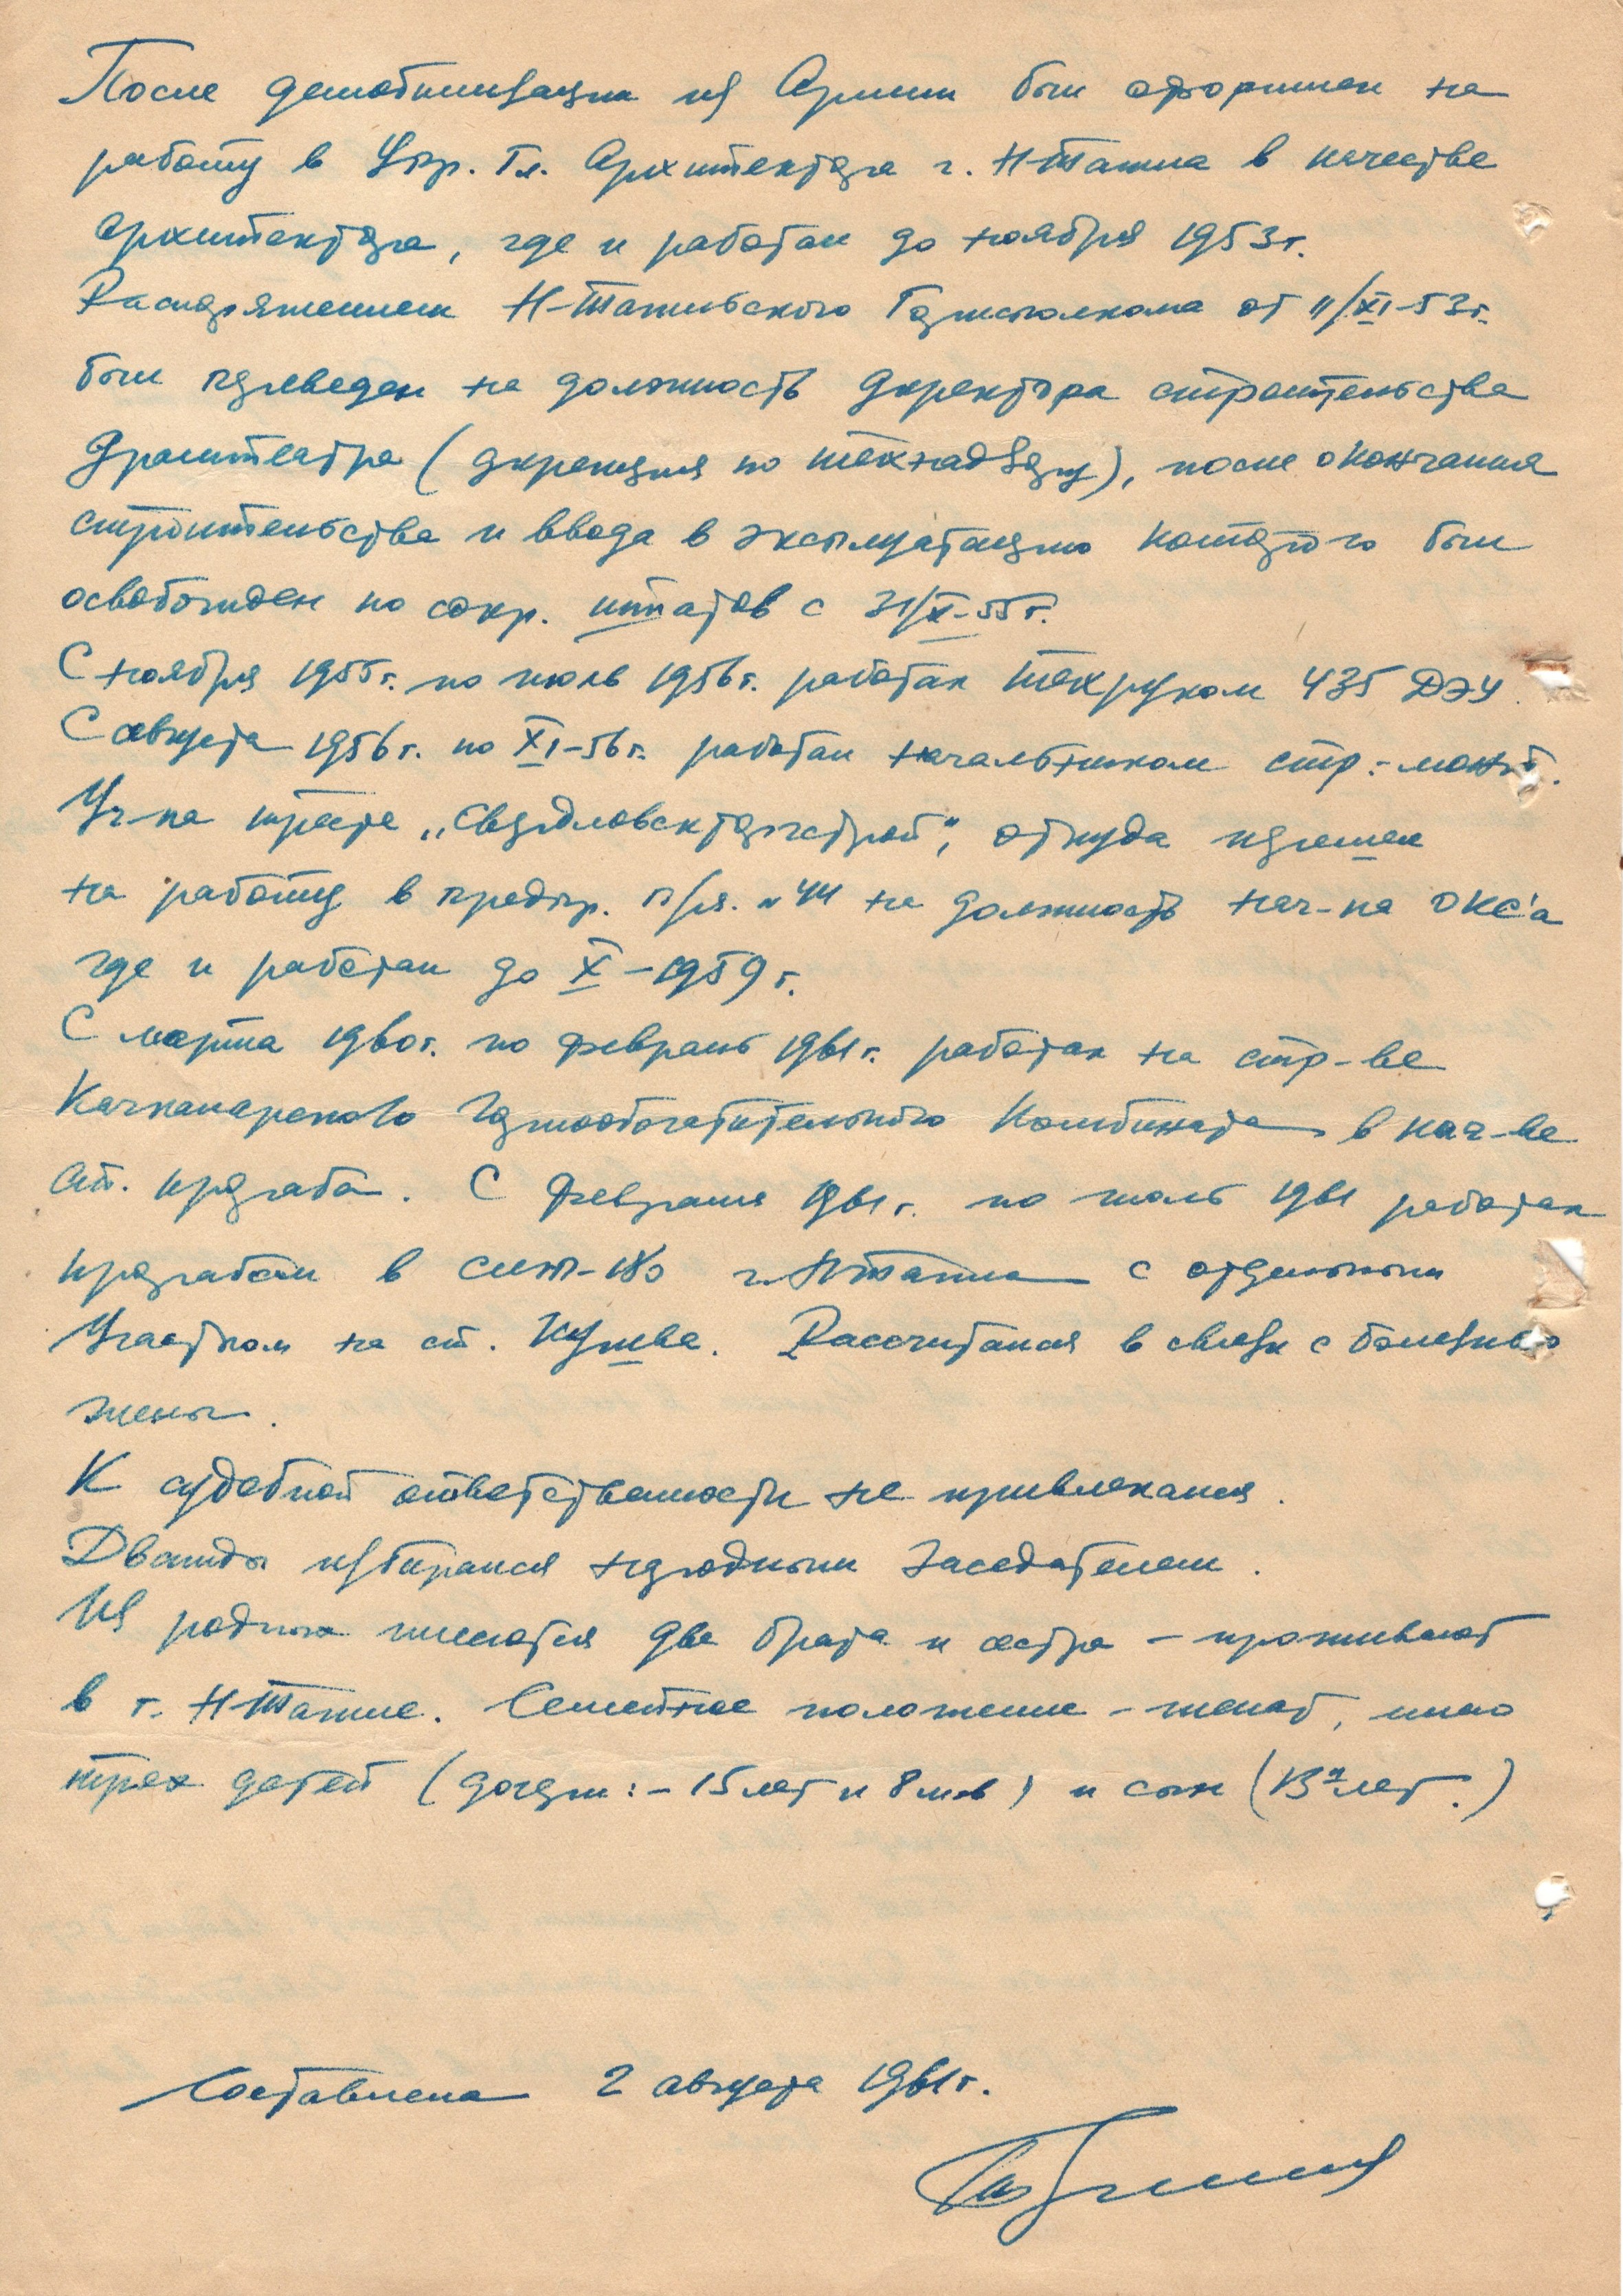 После демобилизации из Армии был оформлен на
работу в Упр. Гл. Архитектора г. Н-Тагила в качестве
архитектора, где и работал до ноября 1953г.
Распоряжением Н-Тагильского Горисполкома от 11/XI-53г.
был переведен на должность директора строительства
Драмтеатра (дирекция по технадзору), после окончания
строительства и ввода в эксплуатацию которого был
освобожден по сокр. штатов с 31/X-55г.
С ноября 1955г. по июль 1956г. работал техруком 435 ДЭУ.
С августа 1956г. по XI-56г. работал начальником стр.-монт.
Уч-ка треста „Свердловскторгстрой", откуда перешел
на работу в предпр. п/я. №44 на должность нач-ка ОКС'а
где и работал до X-1959г.
С марта 1960г. по февраль 1961г. работал на стр-ве
Качканарского Горнообогатительного Комбината в кач-ве
ст. прораба. С февраля 1961г. по июль 1961 работал
прорабом в г. Н-Тагила с отдельным
Участком на ст. Кушва. Рассчитался в связи с болезнью
жены.
К судебной ответственности не привлекался.
Дважды избирался народным заседателем.
Из родных имеются два брата и сестра - проживают
в г. Н-Тагиле. Семейное положение - женат, имею
трех детей (дочери: - 15 лет и 8 м-в) и сын (13 лет.)
Составлена 2 августа 1961г.